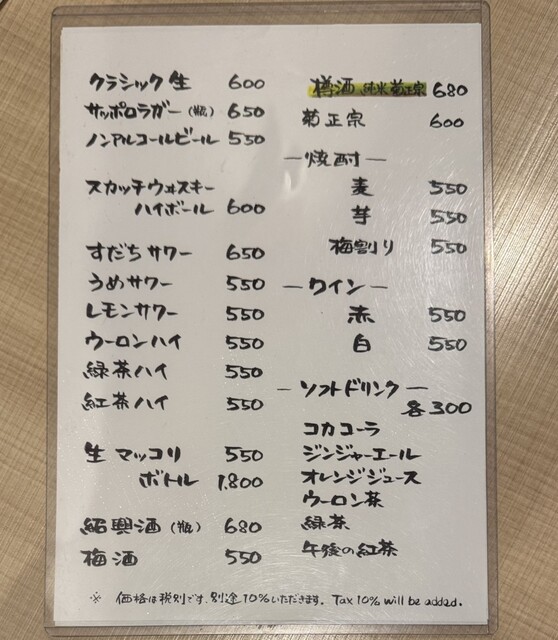 クラシック生 600
サッポロラガー(瓶) 650
ノンアルコールビール 550
スカッチウォスキー
ハイボール 600
すだちサワー 650
うめサワー 550
レモンサワー 550
ウーロンハイ 550
緑茶ハイ 550
紅茶ハイ 550
生マッコリ 550
ボトル 1,800
紹興酒(瓶) 680
梅酒 550
樽酒 純米菊正宗 680
菊正宗 600
―焼酎―
麦 550
芋 550
梅割り 550
―ワイン―
赤 550
白 550
―ソフトドリンク―
各300
コカコーラ
ジンジャーエール
オレンジジュース
ウーロン茶
緑茶
午後の紅茶
※ 価格は税別です、別途10%いただきます。Tax 10% will be added.